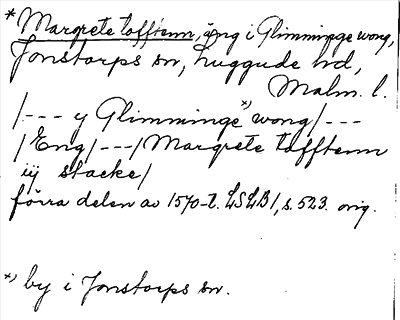 * Margrete tofftenn, äng i Glimminge wong,
Jonstorps sn, Luggude hd,
Malm. l.
/--- y Glimminge *) wong/---
/Eng/---/Margrete tofftenn
iij stacke/
förra delen av 1570-t. LSLB1, s. 523. orig.
*) by i Jonstorps sn.